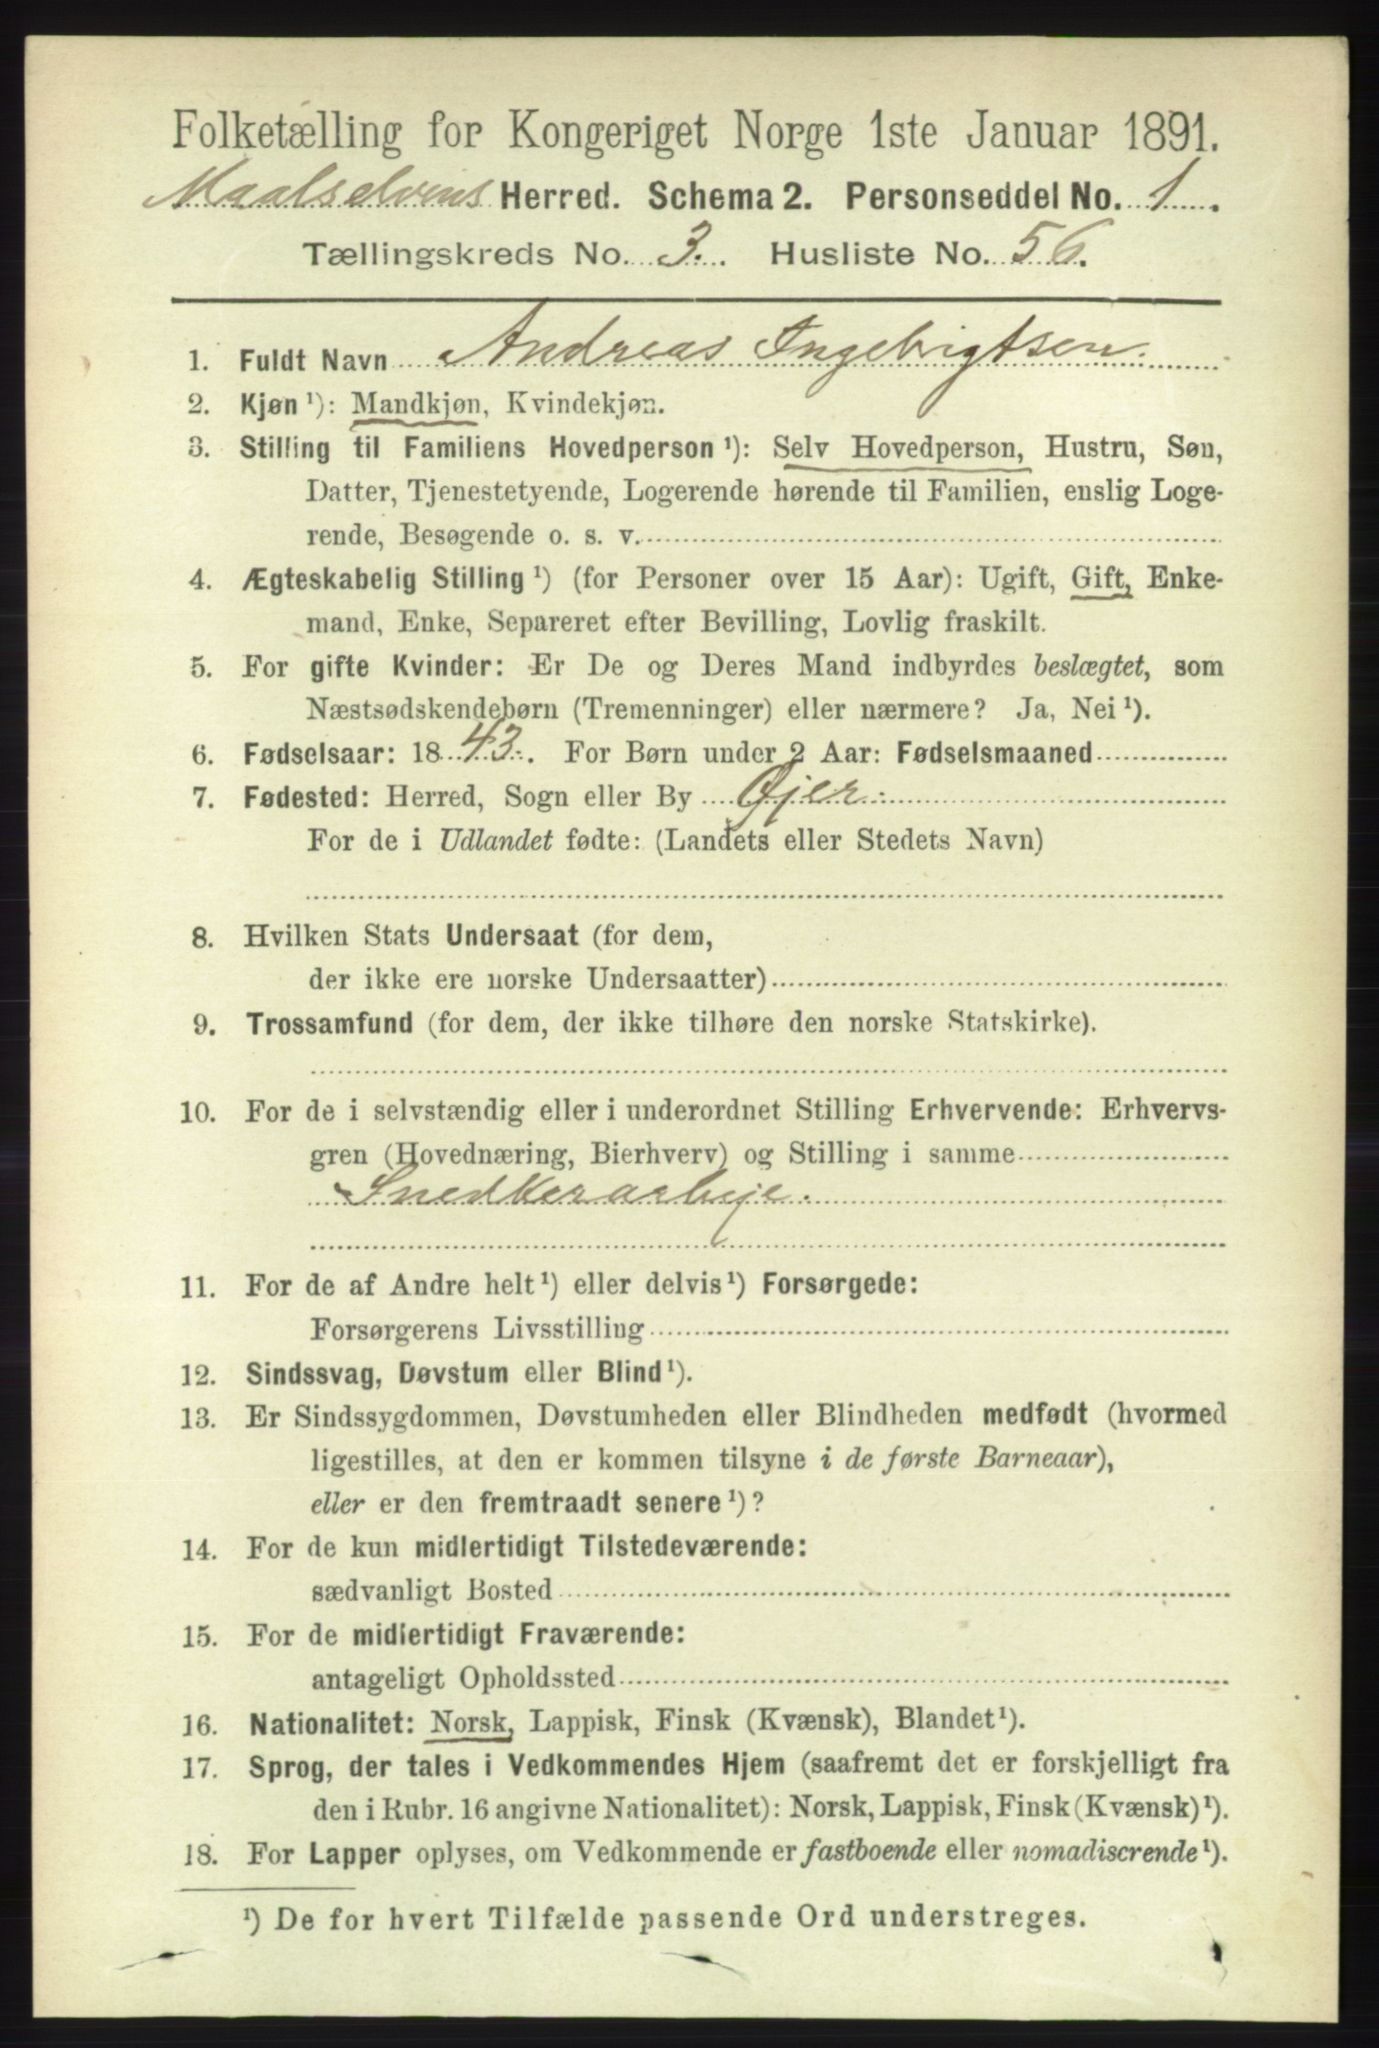 Folketælling for Kongeriget Norge 1ste Januar 1891.
Maalselvens Herred. Schema 2. Personseddel No. 1.
Tællingskreds No. 3. Husliste No. 56.
1. Fuldt Navn Andreas Ingebrigtsen.
2. Kjøn ¹): Mandkjøn, Kvindekjøn.
3. Stilling til Familiens Hovedperson ¹): Selv Hovedperson, Hustru, Søn,
Datter, Tjenestetyende, Logerende hørende til Familien, enslig Loge-
rende, Besøgende o. s. v.
4. Ægteskabelig Stilling ¹) (for Personer over 15 Aar): Ugift, Gift, Enke-
mand, Enke, Separeret efter Bevilling, Lovlig fraskilt.
5. For gifte Kvinder: Er De og Deres Mand indbyrdes beslægtet, som
Næstsødskendebørn (Tremenninger) eller nærmere? Ja, Nei ¹).
6. Fødselsaar: 1843. For Børn under 2 Aar: Fødselsmaaned
7. Fødested: Herred, Sogn eller By Øjer.
For de i Udlandet fødte: (Landets eller Stedets Navn)
8. Hvilken Stats Undersaat (for dem,
der ikke ere norske Undersaatter)
9. Trossamfund (for dem, der ikke tilhøre den norske Statskirke).
10. For de i selvstændig eller i underordnet Stilling Erhvervende: Erhvervs-
gren (Hovednæring, Bierhverv) og Stilling i samme
Snedkerarbeje.
11. For de af Andre helt ¹) eller delvis ¹) Forsørgede:
Forsørgerens Livsstilling
12. Sindssvag, Døvstum eller Blind ¹).
13. Er Sindssygdommen, Døvstumheden eller Blindheden medfødt (hvormed
ligestilles, at den er kommen tilsyne i de første Barneaar),
eller er den fremtraadt senere ¹)?
14. For de kun midlertidigt Tilstedeværende:
sædvanligt Bosted
15. For de midlertidigt Fraværende:
antageligt Opholdssted
16. Nationalitet: Norsk, Lappisk, Finsk (Kvænsk), Blandet ¹).
17. Sprog, der tales i Vedkommendes Hjem (saafremt det er forskjelligt fra
den i Rubr. 16 angivne Nationalitet): Norsk, Lappisk, Finsk (Kvænsk) ¹).
18. For Lapper oplyses, om Vedkommende er fastboende eller nomadiserende ¹).
¹) De for hvert Tilfælde passende Ord understreges.